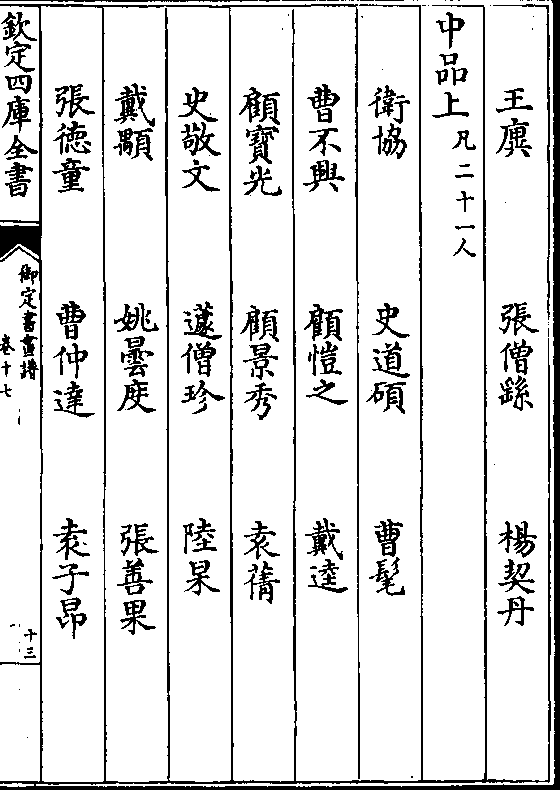 王廙 張僧繇 楊契丹
中品上 凡二十一人
衛協 史道碩 曹髦
曹不興 顧愷之 戴逵
顧寶光 顧景秀 袁蒨
史敬文 蘧僧珍 陸杲
戴顒 姚曇度 張善果
張德童 曹仲達 袁子昂
欽定四庫全書
御定書畫譜
卷十七
十三